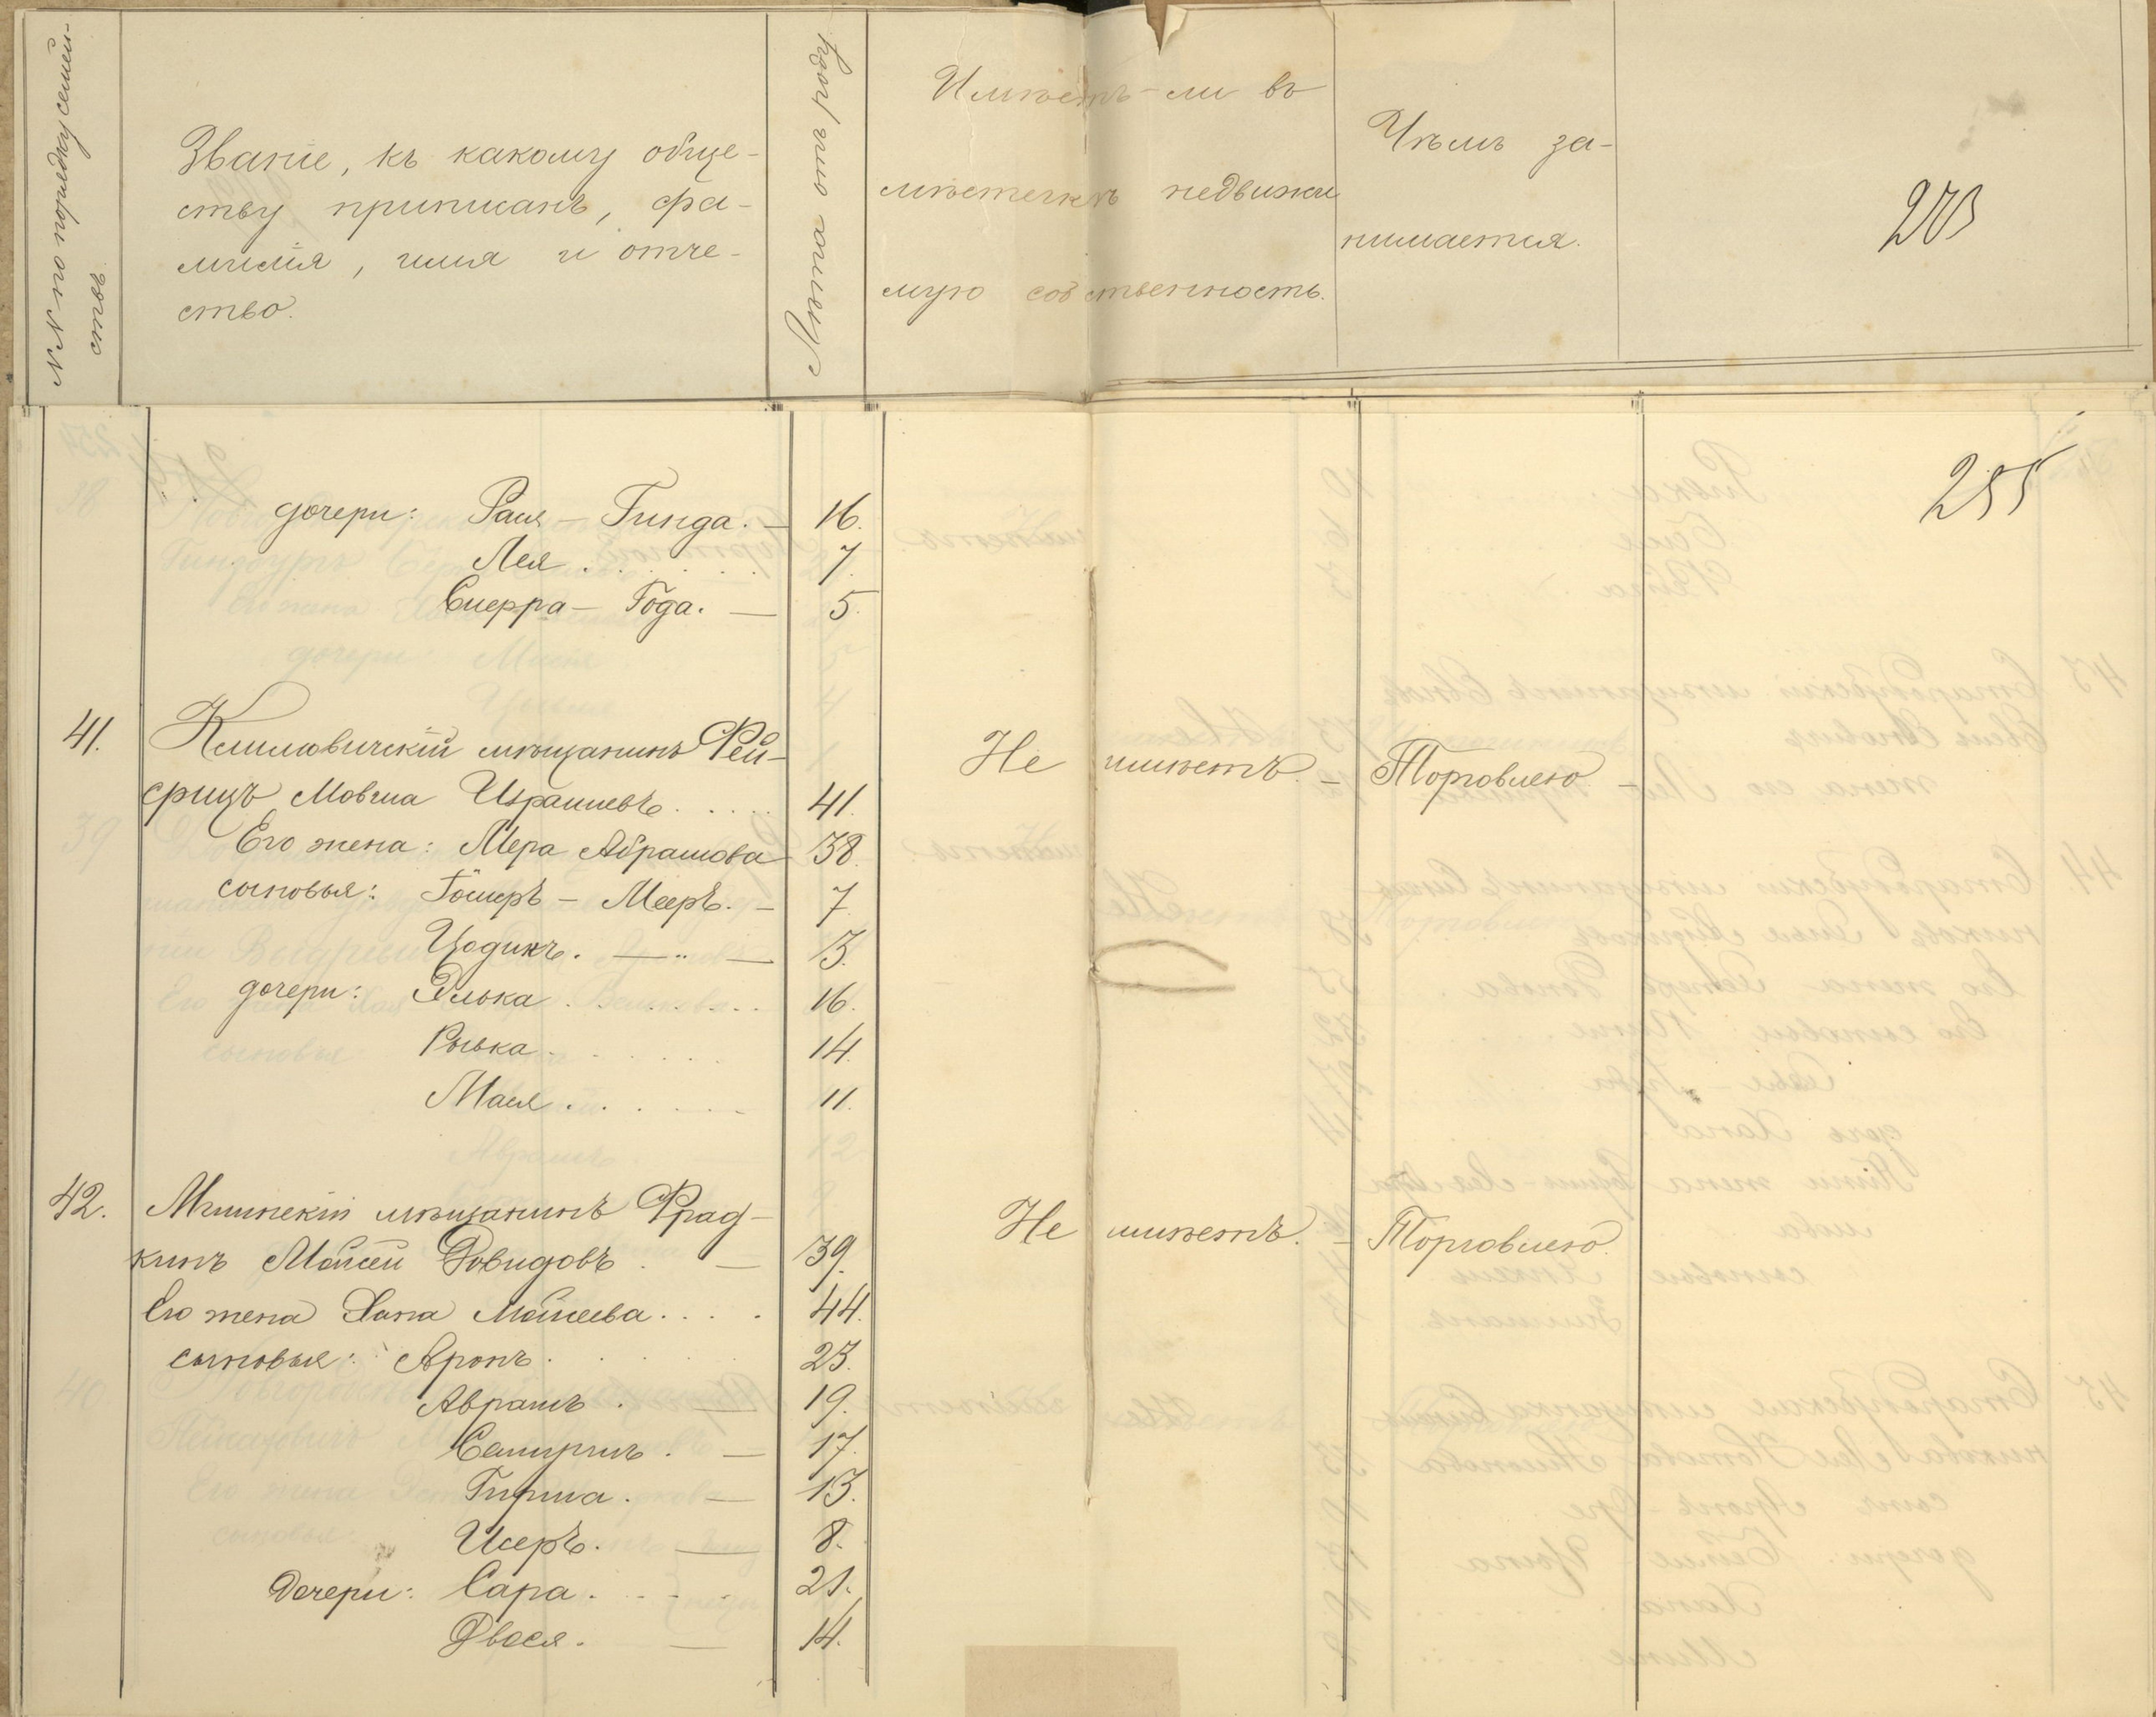 №№ по порядку семей-
ствъ
Званіе, къ какому обще-
ству приписанъ, фа-
милія, имя и отче-
ство.
Лѣта отъ роду
Имѣетъ-ли въ
мѣстечкѣ недвижи
мую собственность.
Чѣмъ за-
нимается.
203
255
дочери: Рася - Гинда. — 16.
Лея . . . . . 7.
Сиерра - Года. — 5.
41. Климовичскій мѣщанинъ Рей- Не имѣетъ. — Торговлею —
срицъ Мовша Израилевъ . . . . 41.
Его жена: Мера Абрамова 38.
сыновья: Гошеръ - Мееръ. — 7.
Цодикъ. — " — 3.
дочери: Элька . . . . . . 16.
Рывка . . . . . 14.
Мася . . . . . 11.
42. Мглинскій мѣщанинъ Фрад- Не имѣетъ. — Торговлею.
кинъ Мойсей Довидовъ . — 39.
Его жена Хана Мойсеева . . . . 44.
сыновья: Аронъ . . . . . 23.
Аврамъ . — 19.
. — 17.
Гирша . — 13.
Исеръ. — 8.
Дочери: Сара . - - . 21.
Двося. — 14.